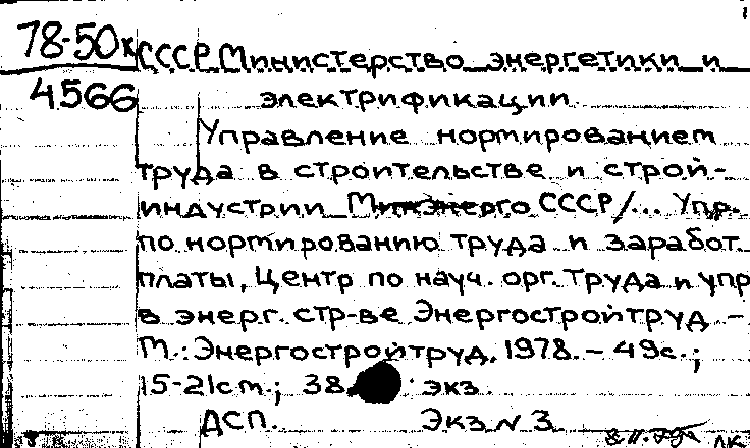 78-50к СССР Министерство энергетики и
4566 электрификации
Управление нормированием
труда в строительстве и строй-
индустрии Минэнерго СССР/... Упр.
по нормированию труда и заработ.
платы, Центр по науч. орг. труда и упр
в энерг. стр-ве Энергостройтруд –
М.: Энергостройтруд, 1978. – 49с.;
15-21см.; 38 экз.
ДСП. Экз N 3